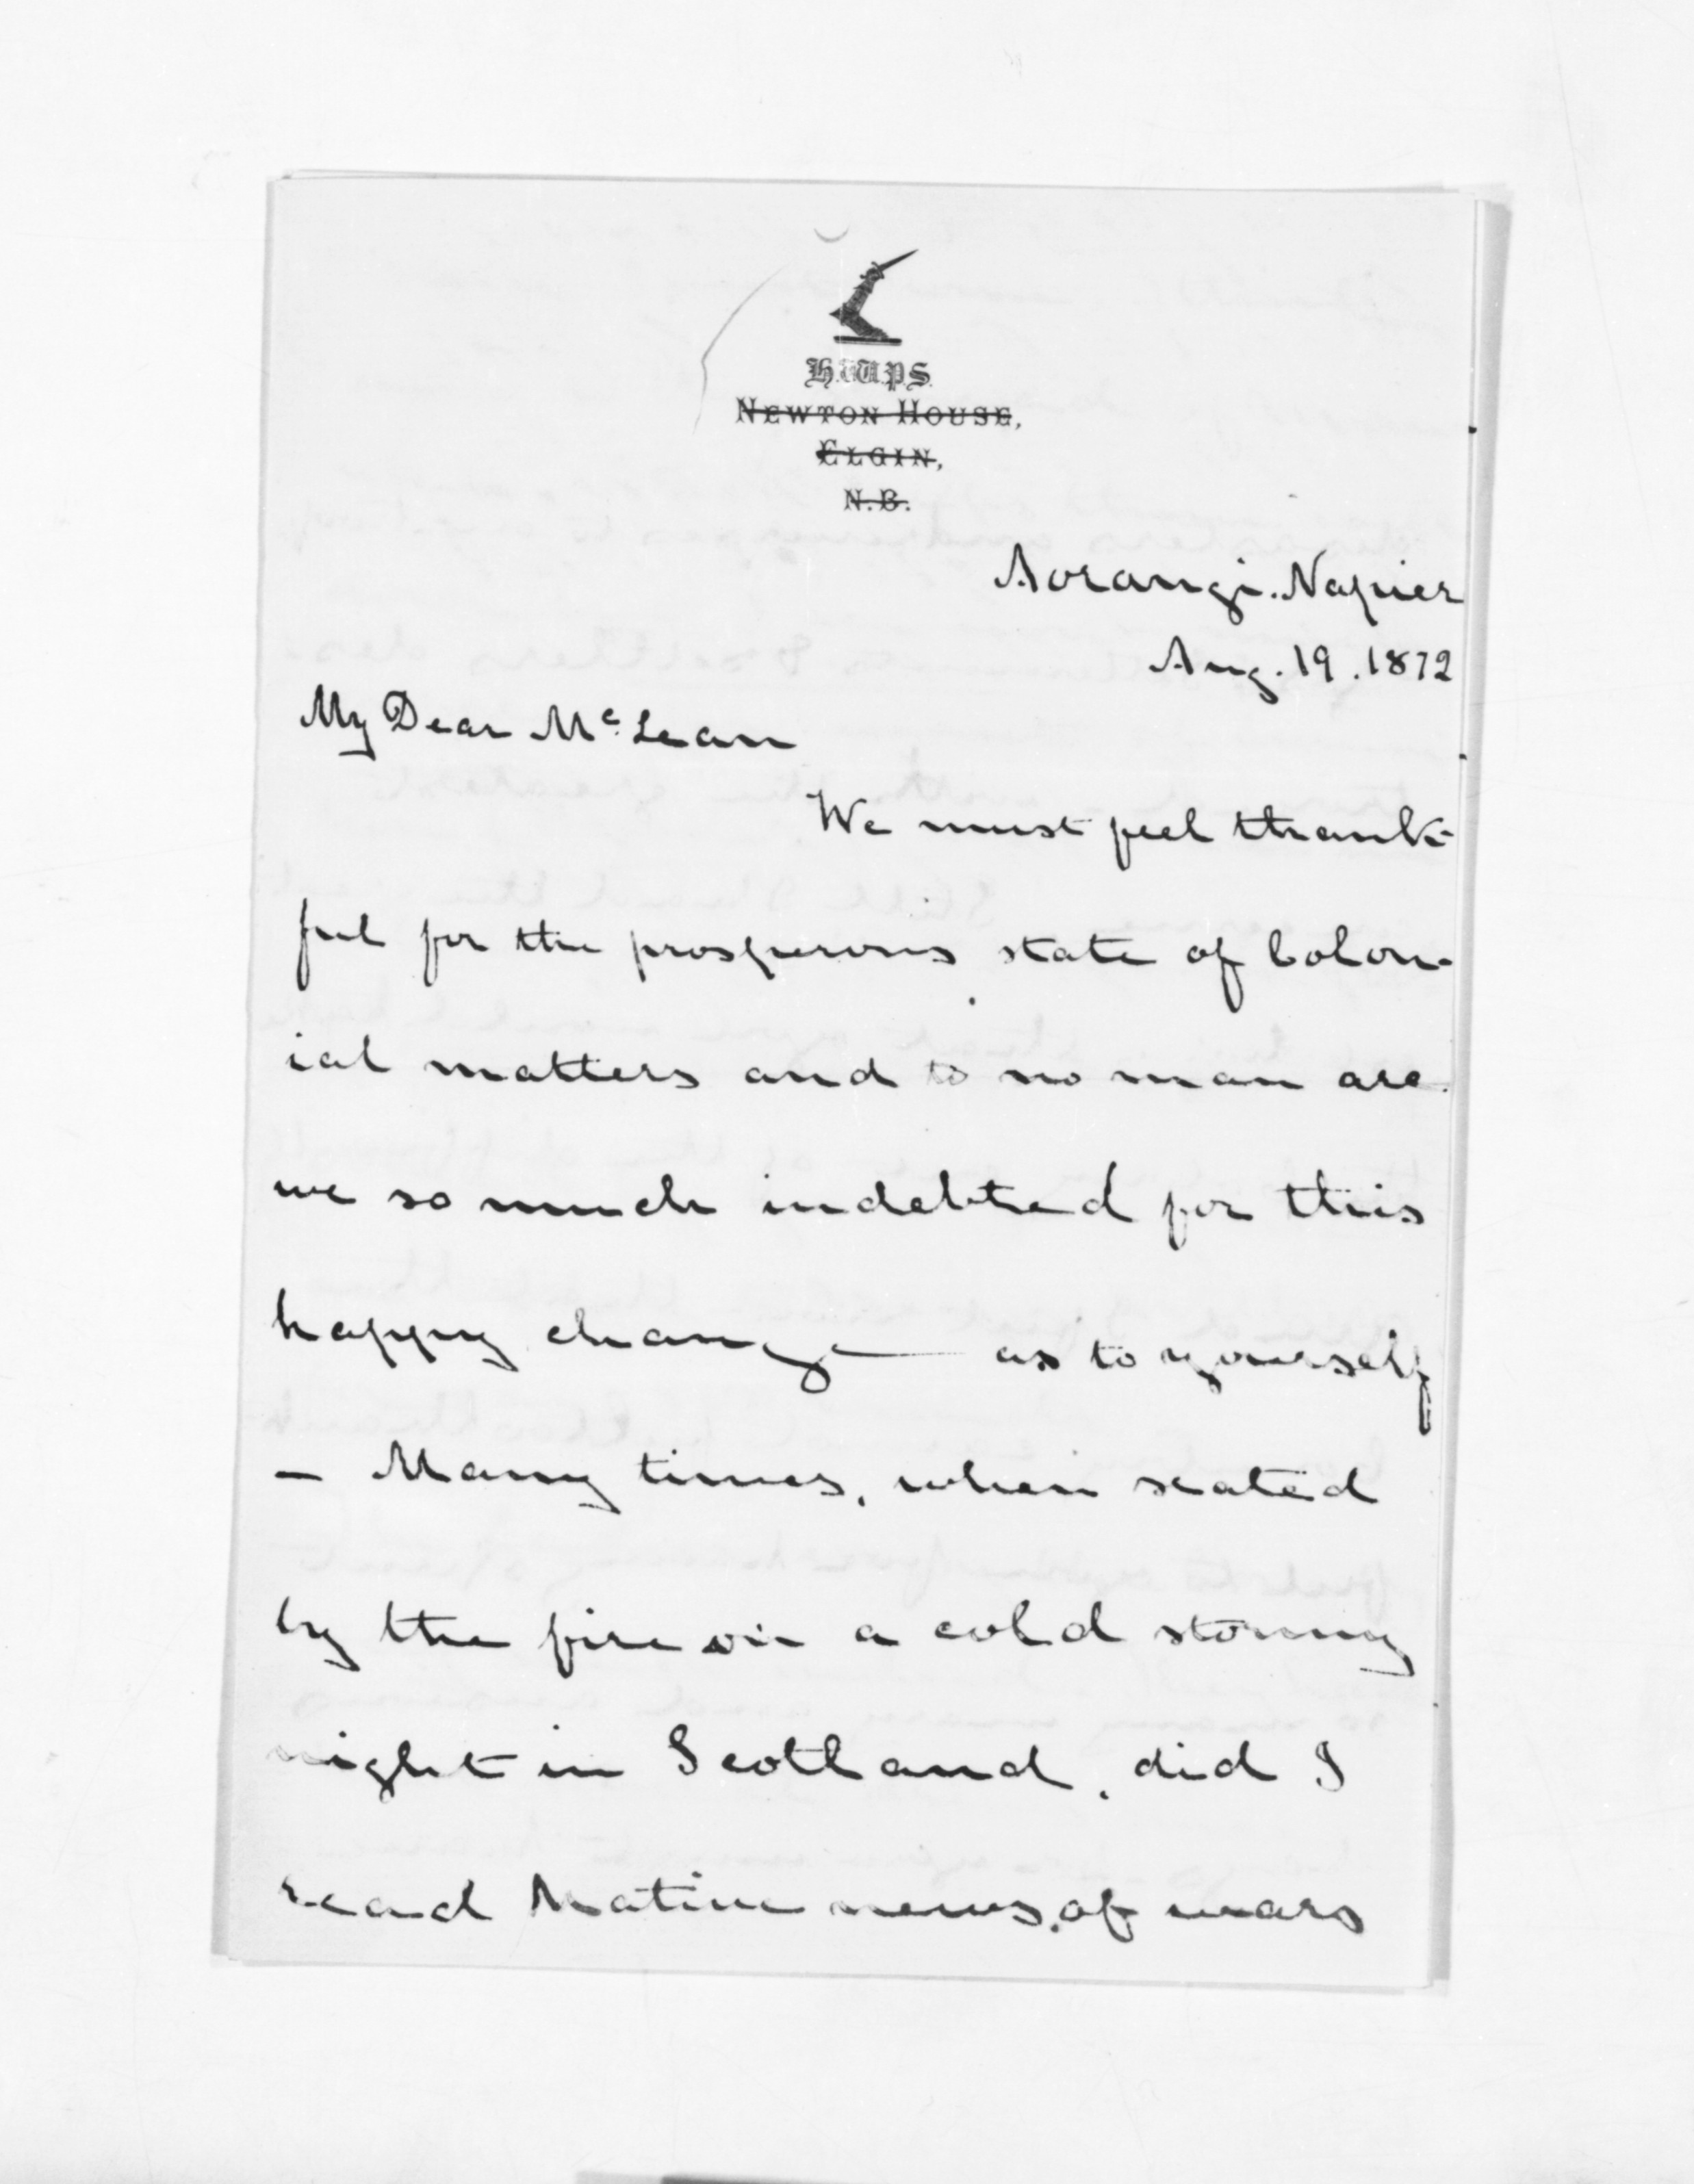 H.W.P.S.
NEWTON HOUSE,
ELGIN,
N.B.
Aorangi. Napier
Aug. 19. 1872
My Dear McLean
We must feel thank-
ful for the prosperous state of Colon-
ial matters and to no man are
we so much indebted for this
happy change — as to yourself
— Many times, when seated
by the fire on a cold stormy
night in Scotland, did I
read Native news, of wars